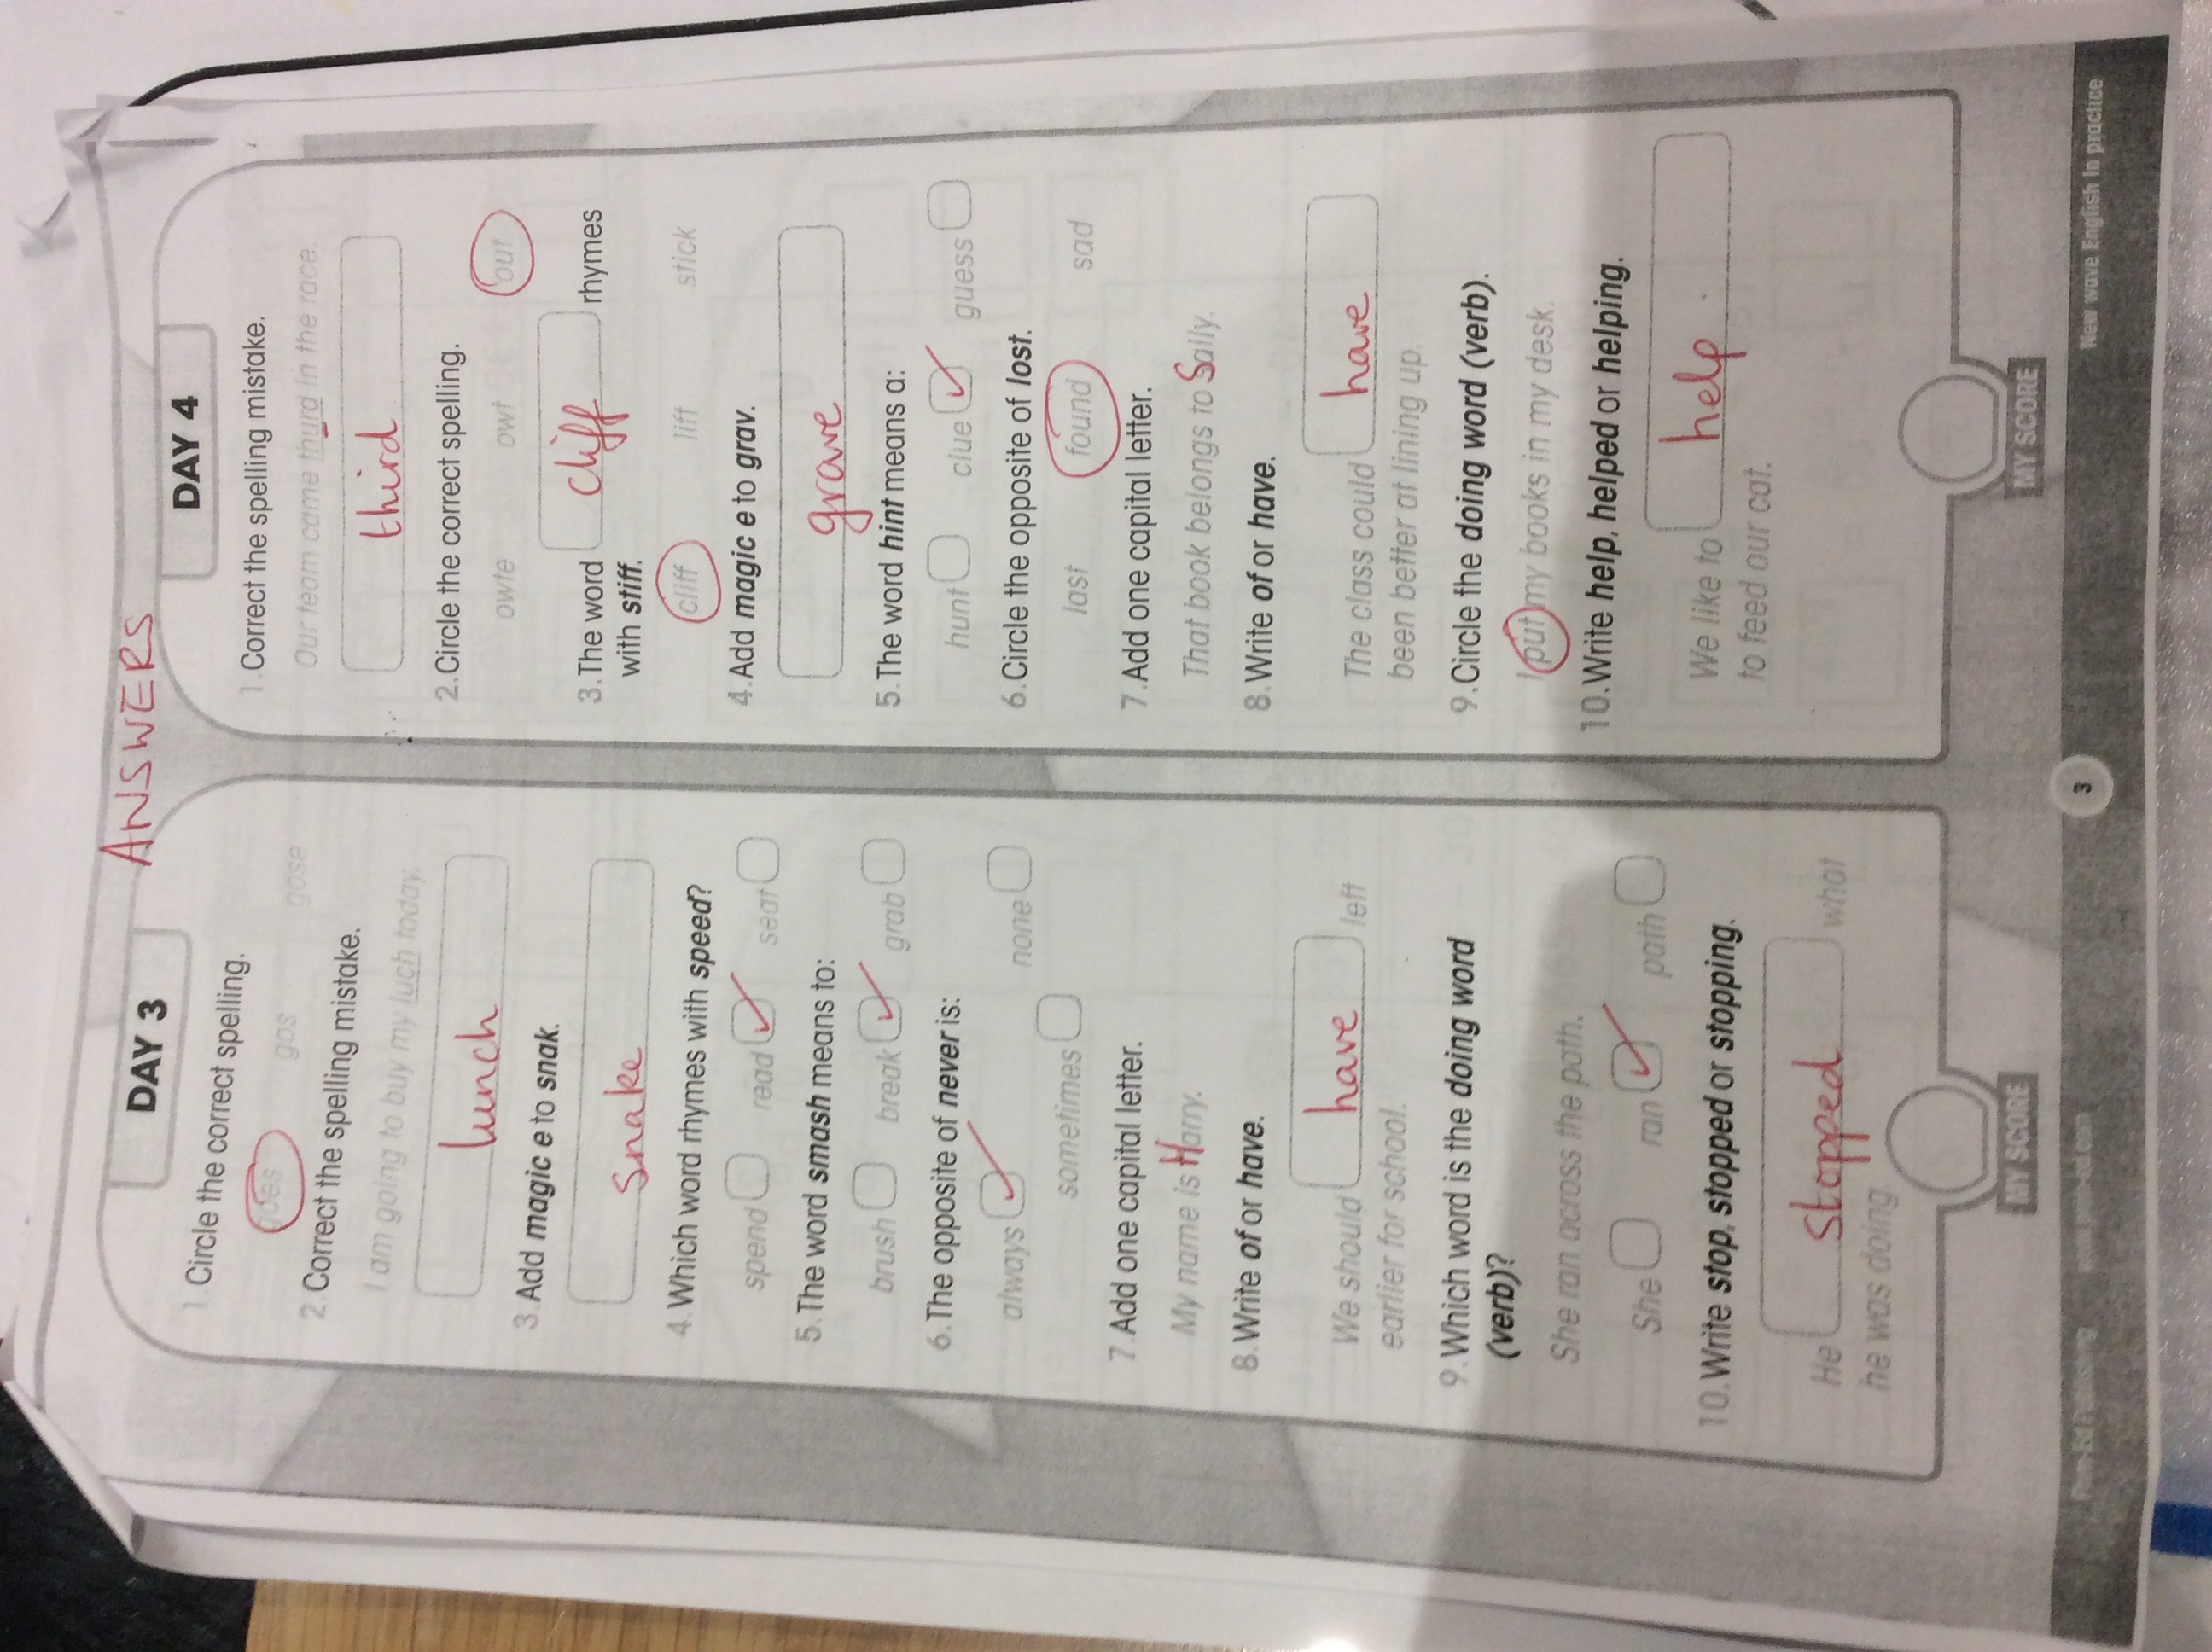 ANSWERS
DAY 3
1. Circle the correct spelling.
goes gos gose
2. Correct the spelling mistake.
I am going to buy my luch today.
lunch
3. Add magic e to snak.
snake
4. Which word rhymes with speed?
spend read ✓ seat
5. The word smash means to:
brush break ✓ grab
6. The opposite of never is:
always ✓ none
sometimes
7 Add one capital letter.
My name is Harry.
8. Write of or have.
We should have left
earlier for school.
9. Which word is the doing word
(verb)?
She ran across the path.
She ran ✓ path
10. Write stop, stopped or stopping.
He stopped what
he was doing
MY SCORE
DAY 4
1. Correct the spelling mistake.
Our team came thurd in the race.
third
2. Circle the correct spelling.
owte owt out
3. The word cliff rhymes
with stiff.
cliff lift stick
4. Add magic e to grav.
grave
5. The word hint means a:
hunt clue ✓ guess
6. Circle the opposite of lost.
last found sad
7. Add one capital letter.
That book belongs to Sally.
8. Write of or have.
The class could have
been better at lining up.
9. Circle the doing word (verb).
I put my books in my desk.
10. Write help, helped or helping.
We like to help.
to feed our cat.
MY SCORE
3
New wave English in practice